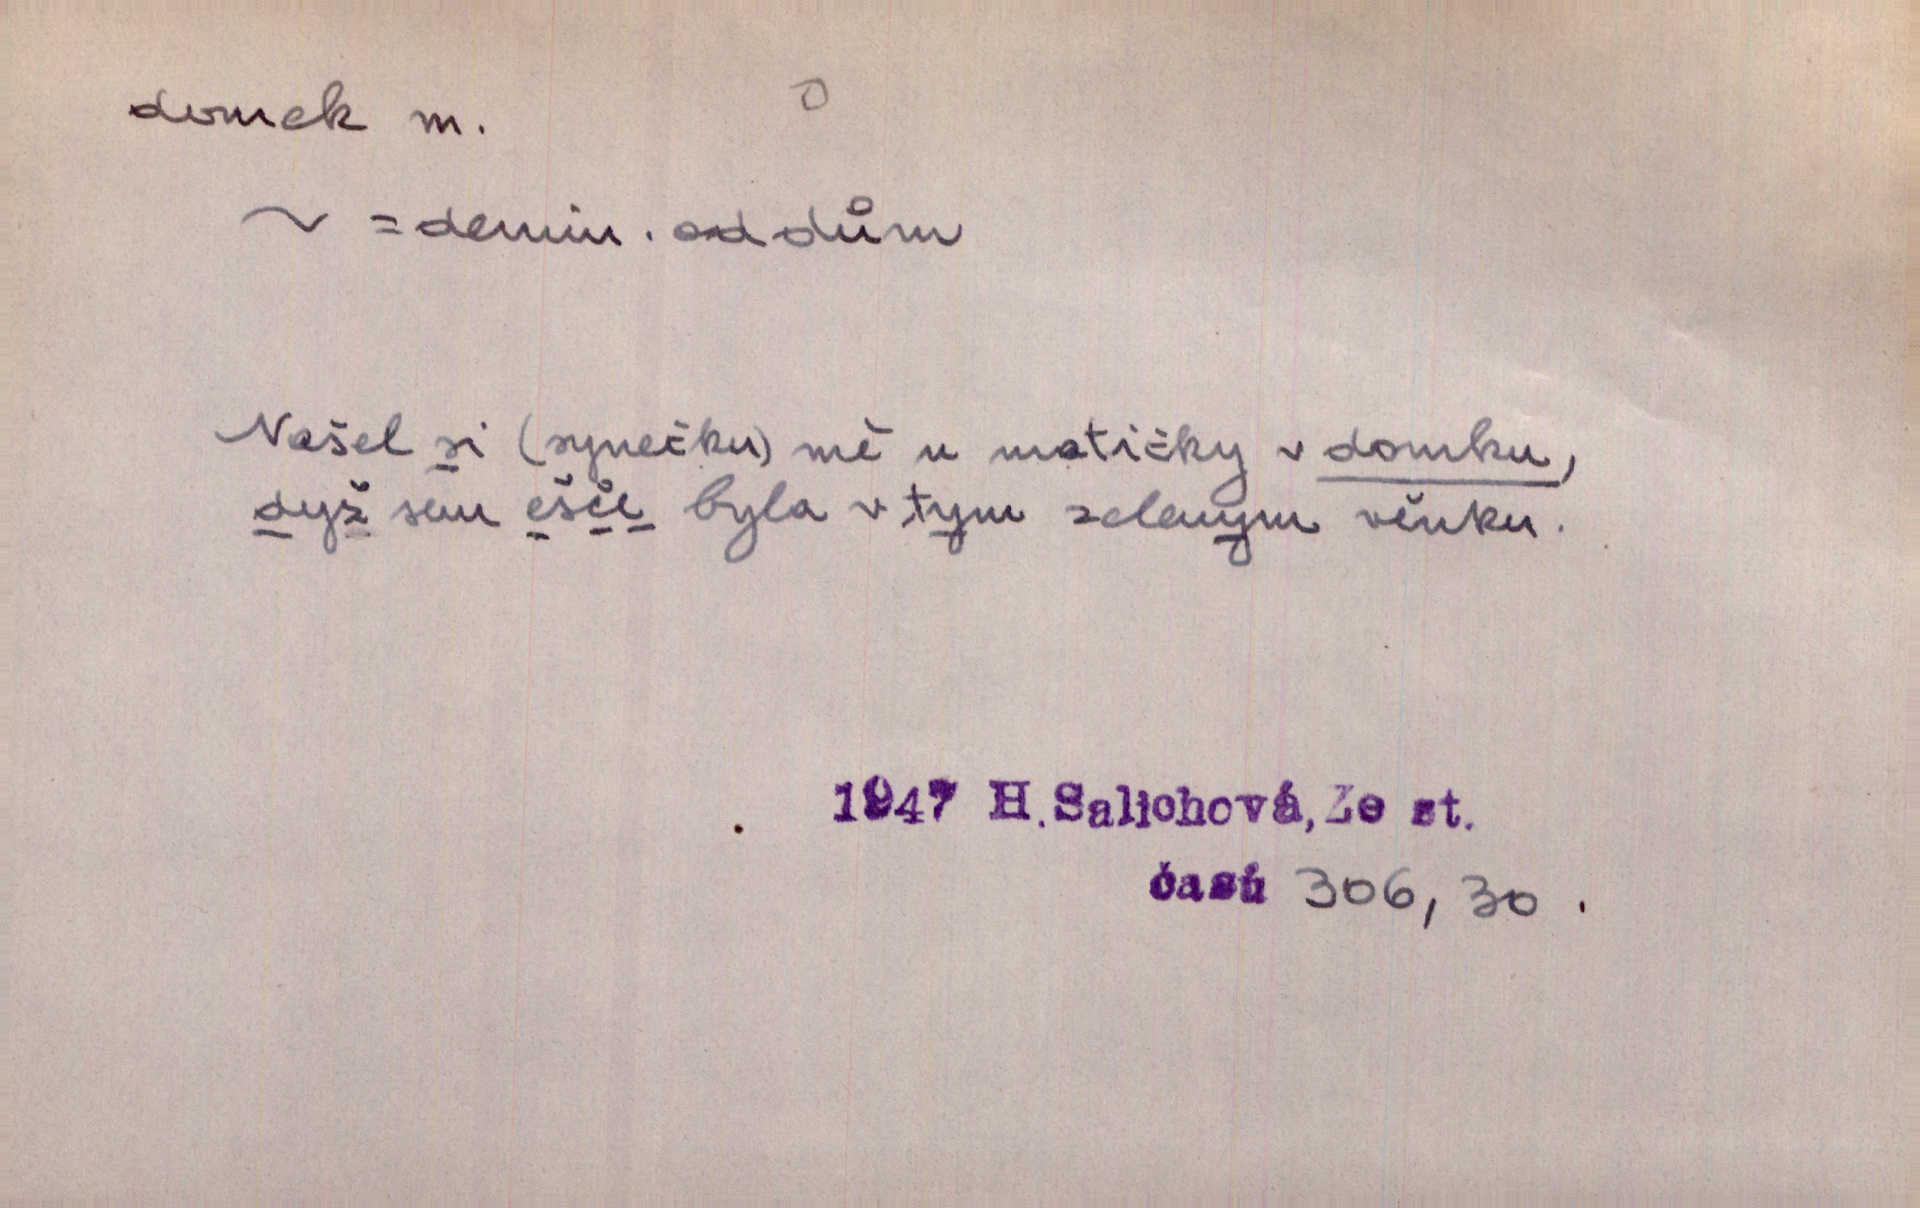 domek m. O
~ = demin. od dům
Našel si (synečku) mě u matičky v domku,
dyž sem ešče byla v tym zelenym věnku.
1947 H.Salichová, Ze st.
časů 306, 30.